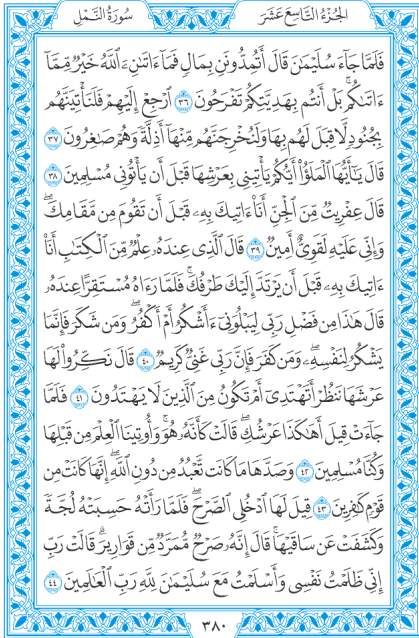 الجُزْءُ التَّاسِعَ عَشَرَ
سُورَةُ النَّمْلِ
فَلَمَّا جَآءَ سُلَيْمَٰنَ قَالَ أَتُمِدُّونَنِ بِمَالٍ فَمَآ ءَاتَىٰنِۦَ ٱللَّهُ خَيْرٌ مِّمَّآ
ءَاتَىٰكُمۚ بَلْ أَنتُم بِهَدِيَّتِكُمْ تَفْرَحُونَ ٣٦ ٱرْجِعْ إِلَيْهِمْ فَلَنَأْتِيَنَّهُم
بِجُنُودٍ لَّا قِبَلَ لَهُم بِهَا وَلَنُخْرِجَنَّهُم مِّنْهَآ أَذِلَّةً وَهُمْ صَٰغِرُونَ ٣٧
قَالَ يَٰٓأَيُّهَا ٱلْمَلَؤُا۟ أَيُّكُمْ يَأْتِينِى بِعَرْشِهَا قَبْلَ أَن يَأْتُونِى مُسْلِمِينَ ٣٨
قَالَ عِفْرِيتٌ مِّنَ ٱلْجِنِّ أَنَا۠ ءَاتِيكَ بِهِۦ قَبْلَ أَن تَقُومَ مِن مَّقَامِكَۖ
وَإِنِّى عَلَيْهِ لَقَوِىٌّ أَمِينٌ ٣٩ قَالَ ٱلَّذِى عِندَهُۥ عِلْمٌ مِّنَ ٱلْكِتَٰبِ أَنَا۠
ءَاتِيكَ بِهِۦ قَبْلَ أَن يَرْتَدَّ إِلَيْكَ طَرْفُكَۚ فَلَمَّا رَءَاهُ مُسْتَقِرًّا عِندَهُۥ
قَالَ هَٰذَا مِن فَضْلِ رَبِّى لِيَبْلُوَنِىٓ ءَأَشْكُرُ أَمْ أَكْفُرُۖ وَمَن شَكَرَ فَإِنَّمَا
يَشْكُرُ لِنَفْسِهِۦۖ وَمَن كَفَرَ فَإِنَّ رَبِّى غَنِىٌّ كَرِيمٌ ٤٠ قَالَ نَكِّرُوا۟ لَهَا
عَرْشَهَا نَنظُرْ أَتَهْتَدِىٓ أَمْ تَكُونُ مِنَ ٱلَّذِينَ لَا يَهْتَدُونَ ٤١ فَلَمَّا
جَآءَتْ قِيلَ أَهَٰكَذَا عَرْشُكِۖ قَالَتْ كَأَنَّهُۥ هُوَۚ وَأُوتِينَا ٱلْعِلْمَ مِن قَبْلِهَا
وَكُنَّا مُسْلِمِينَ ٤٢ وَصَدَّهَا مَا كَانَت تَّعْبُدُ مِن دُونِ ٱللَّهِۖ إِنَّهَا كَانَتْ مِن
قَوْمٍ كَٰفِرِينَ ٤٣ قِيلَ لَهَا ٱدْخُلِى ٱلصَّرْحَۖ فَلَمَّا رَأَتْهُ حَسِبَتْهُ لُجَّةً
وَكَشَفَتْ عَن سَاقَيْهَاۚ قَالَ إِنَّهُۥ صَرْحٌ مُّمَرَّدٌ مِّن قَوَارِيرَۗ قَالَتْ رَبِّ
إِنِّى ظَلَمْتُ نَفْسِى وَأَسْلَمْتُ مَعَ سُلَيْمَٰنَ لِلَّهِ رَبِّ ٱلْعَٰلَمِينَ ٤٤
٣٨٠